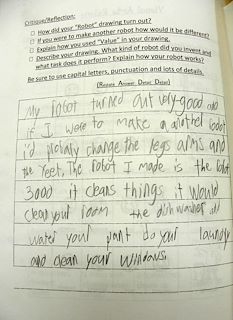 Critique/Reflection:
□ How did your "Robot" drawing turn out?
□ If you were to make another robot how would it be different?
□ Explain how you used "Value" in your drawing.
□ Describe your drawing. What kind of robot did you invent and
what task does it perform? Explain how your robot works?
Be sure to use capital letters, punctuation and lots of details.
(Restate Answer Detail Detail)
My robot turned out very good and
if I were to make a another robot
i'd probaly change the legs arms and
the feet. The robot I made is the robot
3000 it cleans things it would
clean your room the dishwasher and
water your pant do your laundy
and clean your windows